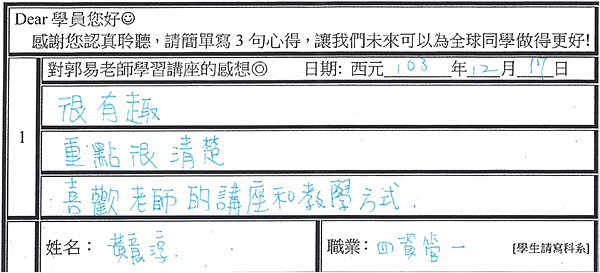 Dear 學員您好☺
感謝您認真聆聽，請簡單寫 3 句心得，讓我們未來可以為全球同學做得更好!
對郭易老師學習講座的感想◎ 日期: 西元 103 年 12 月 17 日
1
很有趣
重點很清楚
喜歡老師的講座和教學方式.
姓名： 黃 淳 職業：四資管一 [學生請寫科系]